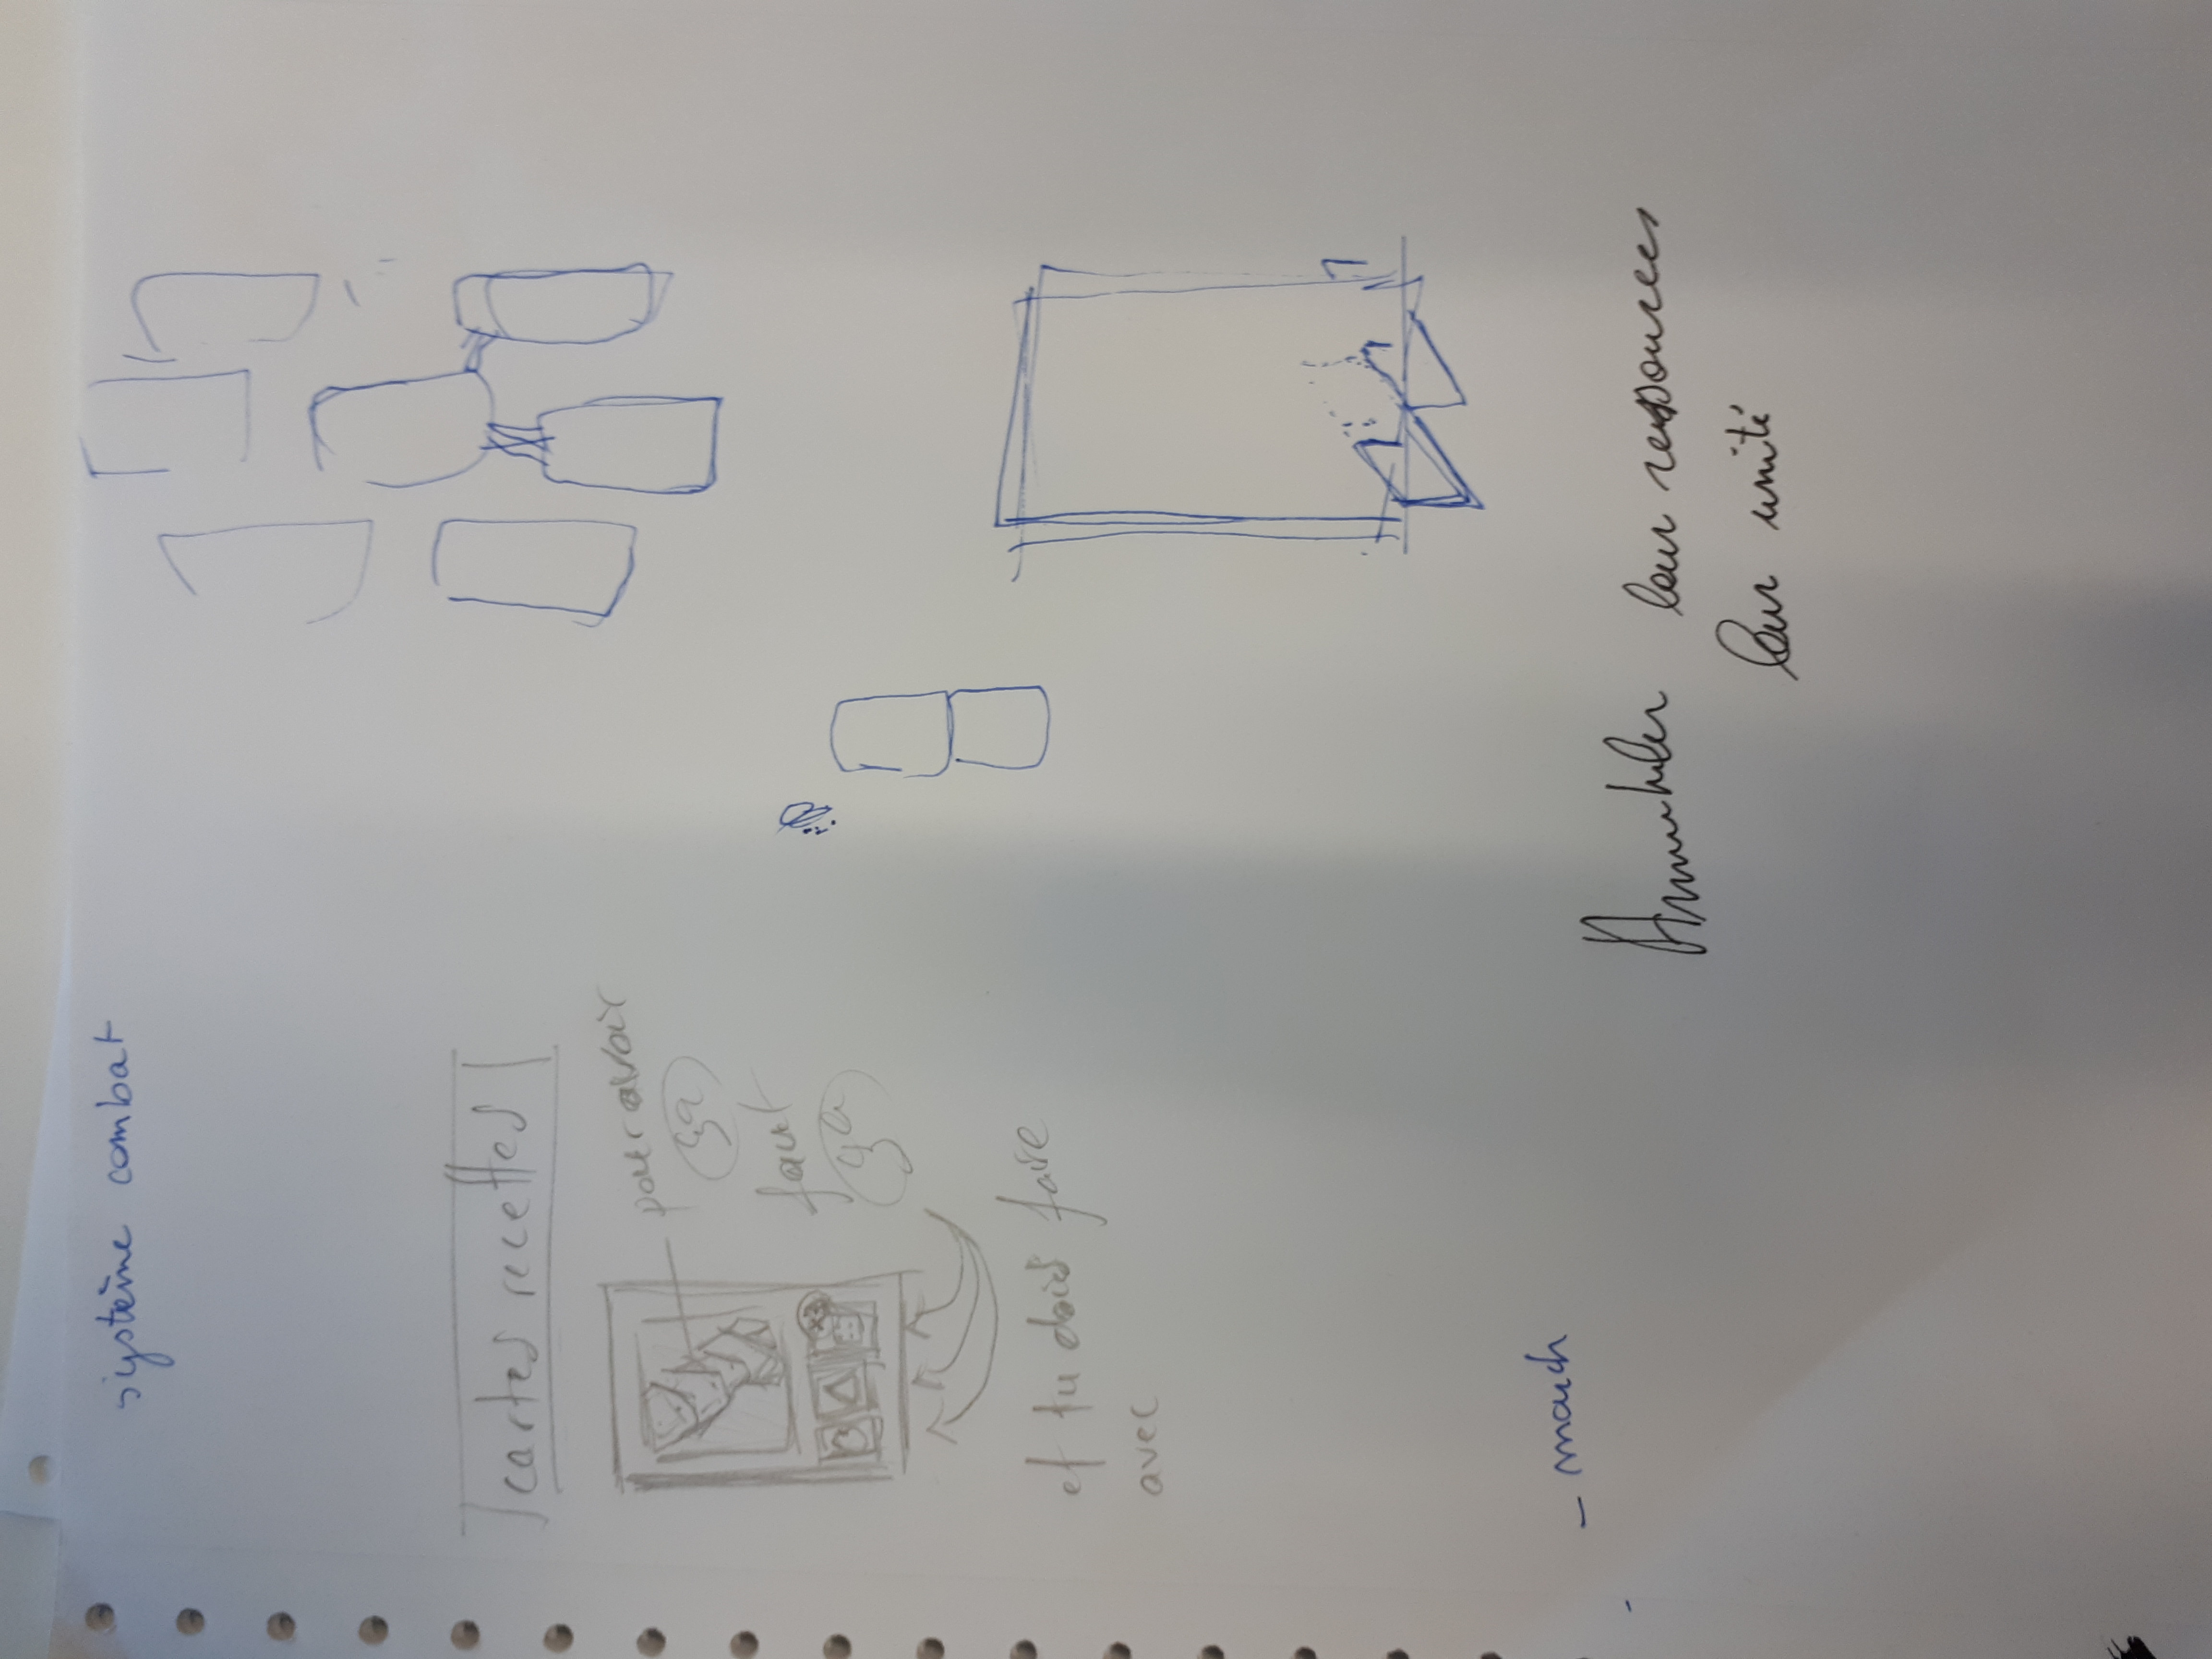 système combat
cartes recettes
pour avoir
ça
faut
ça
x3
et tu dois faire
avec
leur ressources
leur unité